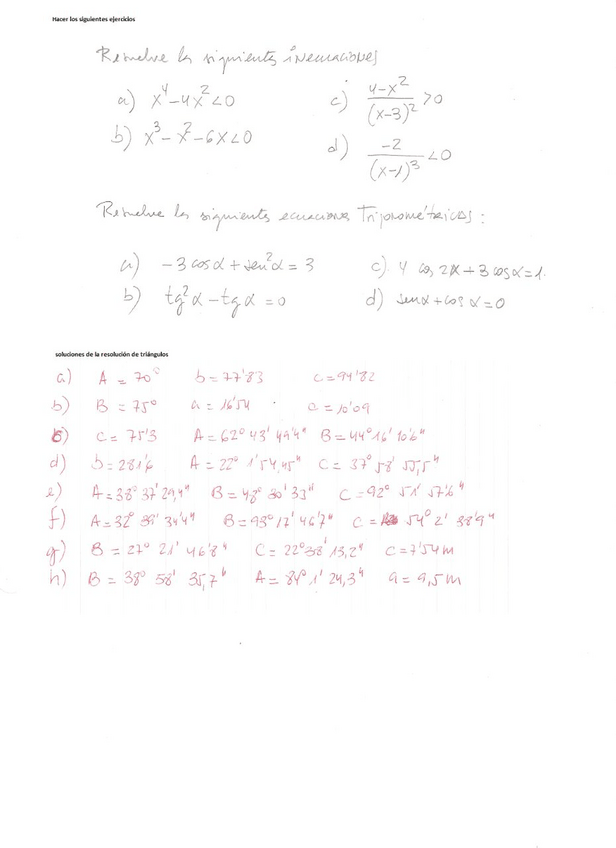 Hacer los siguientes ejercicios
Resuelve las siguientes inecuaciones
a) x⁴-4x²<0
c) (4-x²)/(x-3)² >0
b) x³-x²-6x<0
d) -2/(x-1)³ <0
Resuelve las siguientes ecuaciones Trigonométricas:
a) -3cosα+sen²α=3
c) 4 cos 2α+3cosα=1.
b) tg²α-tgα=0
d) senα+cosα=0
soluciones de la resolución de triángulos
a) A=70º b=77'83 c=94'82
b) B=75º a=16'54 c=10'09
c) C=75'3 A=62º 43' 49'4" B=44º 16' 10'6"
d) b=281'6 A=22º 1' 54,45" C=37º 58' 55,5"
e) A=38º 37' 29,4" B=48º 30' 33" C=92º 51' 57'6"
f) A=32º 39' 34'4" B=93º 17' 46'7" C=54º 2' 38'9"
g) B=27º 21' 46'8" C=22º 38' 13,2" C=7'54m
h) B=38º 58' 35,7" A=84º 1' 24,3" a=9,5m